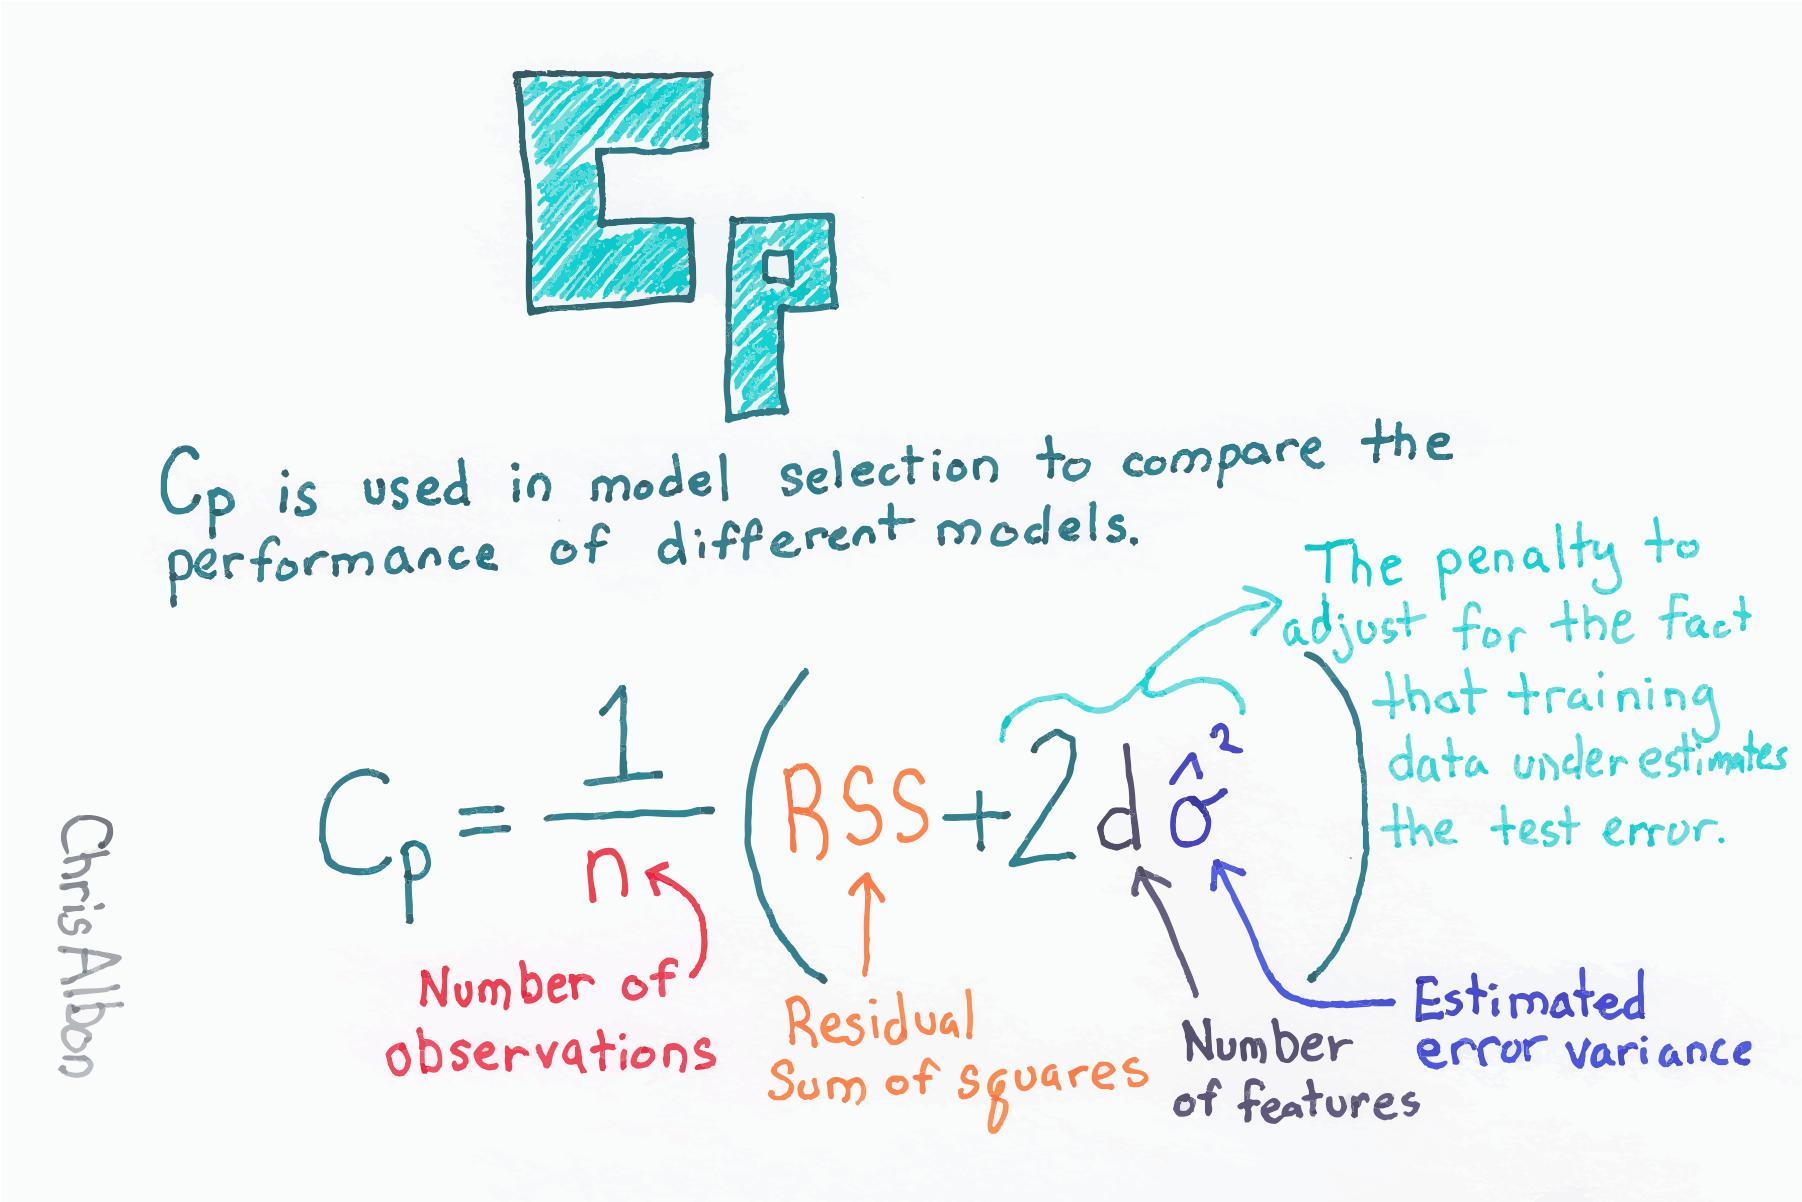 Cp
Cp is used in model selection to compare the
performance of different models.
The penalty to
adjust for the fact
that training
data underestimates
the test error.
Cp = 1/n (RSS + 2dσ̂²)
Number of
observations
Residual
Sum of squares
Number
of features
Estimated
error variance
Chris Albon